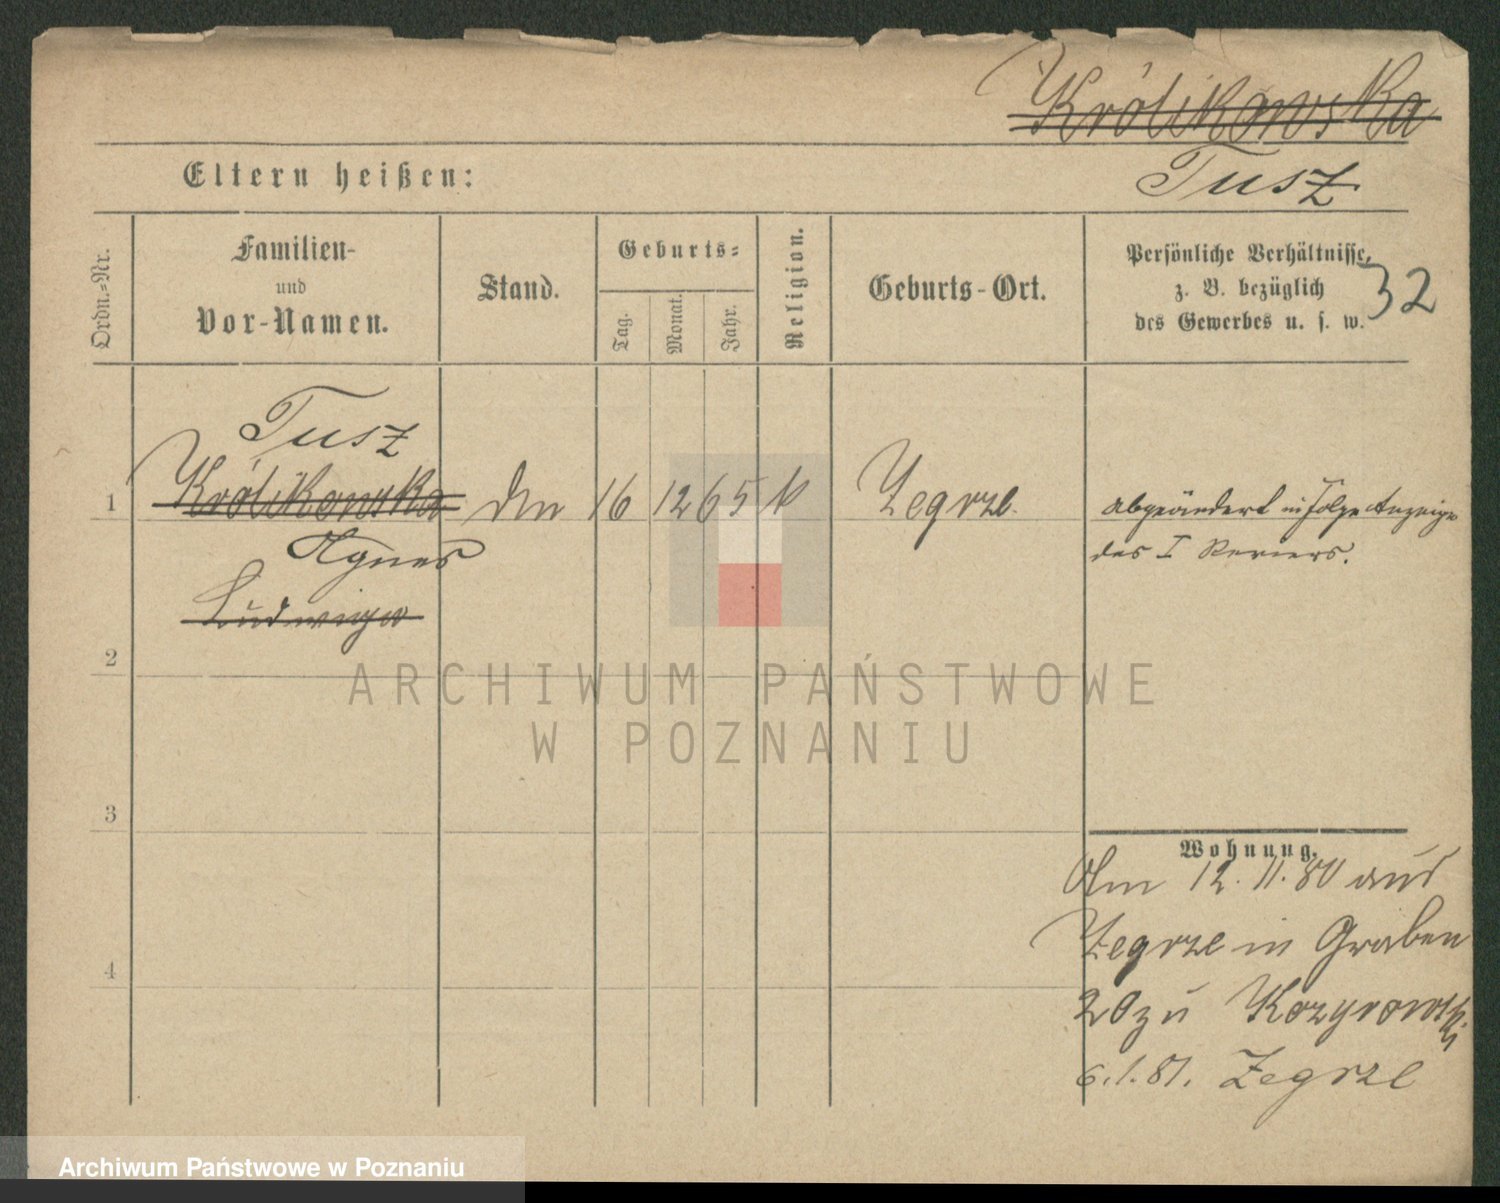 Królikowska
Eltern heißen:
Tusz
Ordn.=Nr.
Familien-
und
Vor-Namen.
Stand.
Geburts=
Tag.
Monat.
Jahr.
Religion.
Geburts-Ort.
Persönliche Verhältnisse,
z. B. bezüglich
des Gewerbes u. s. w.
32
Tusz
1 Królikowska 16 12 65 k Zegrze.
Agnes
Ludwiga
abgeändert in Folge Anzeige
des I Reviers.
2
3
4
Wohnung.
Am 12.11.80 aus
Zegrze in Graben
20 zu Kozyrowski
6.1.81. Zegrze
ARCHIWUM PAŃSTWOWE
W POZNANIU
Archiwum Państwowe w Poznaniu